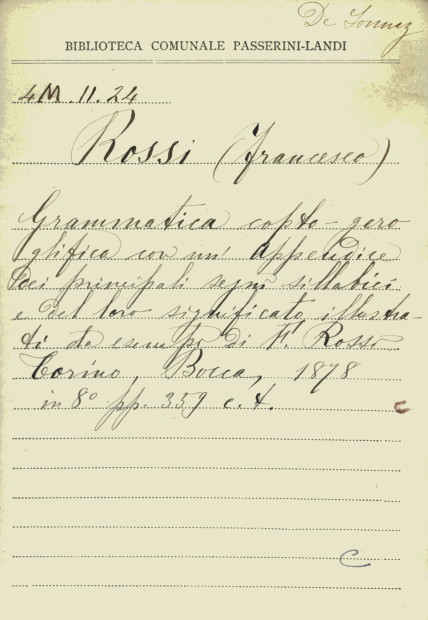 De
BIBLIOTECA COMUNALE PASSERINI-LANDI
4M.11.24
Rossi (Francesco)
Grammatica copto-gero
glifica con un' appendice
dei principali segni sillabici
e del loro significato, illustra-
ti da esempi di F. Rossi
Torino, Bocca, 1878
in 8° pp. 359 c. t.
c
C